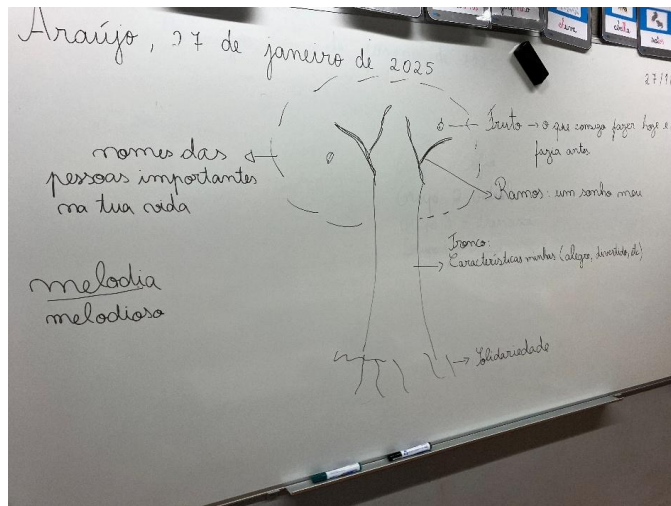 Araújo, 27 de janeiro de 2025
27/1
nomes das
pessoas importantes
na tua vida
melodia
melodioso
Fruto → o que consigo fazer hoje e
fazia antes
Ramos: um sonho meu
Tronco:
Características minhas (alegre, divertido, etc)
Solidariedade